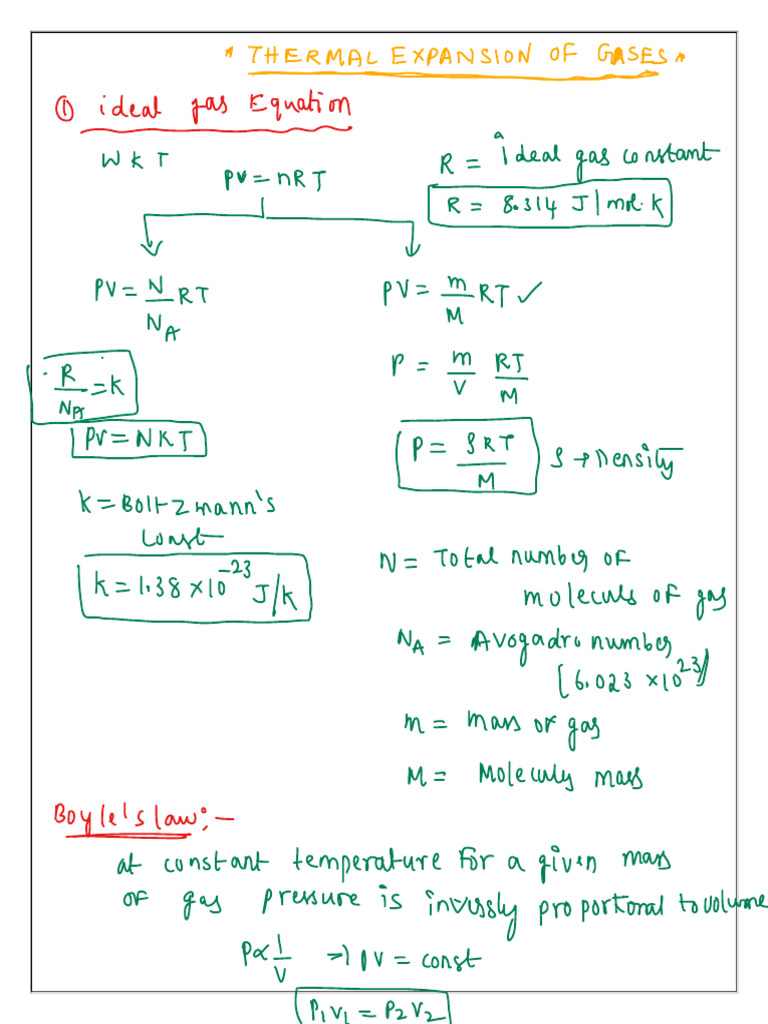 * THERMAL EXPANSION OF GASES *
① ideal gas Equation
WKT
PV = nRT
R = ideal gas constant
R = 8.314 J/mol·K
PV = N/NA RT
R/NA = K
PV = NKT
K = Boltzmann's
Const
K = 1.38 × 10^-23 J/K
PV = m/M RT ✓
P = m/V RT/M
P = SRT/M S → Density
N = Total number of
moleculs of gas
NA = Avogadro number
[6.023 × 10^23)
m = mass of gas
M = Moleculy mass
Boyle's law:-
at constant temperature For a given mass
of gas pressure is inversly proportoral to volume
P ∝ 1/V → PV = const
P1V1 = P2V2